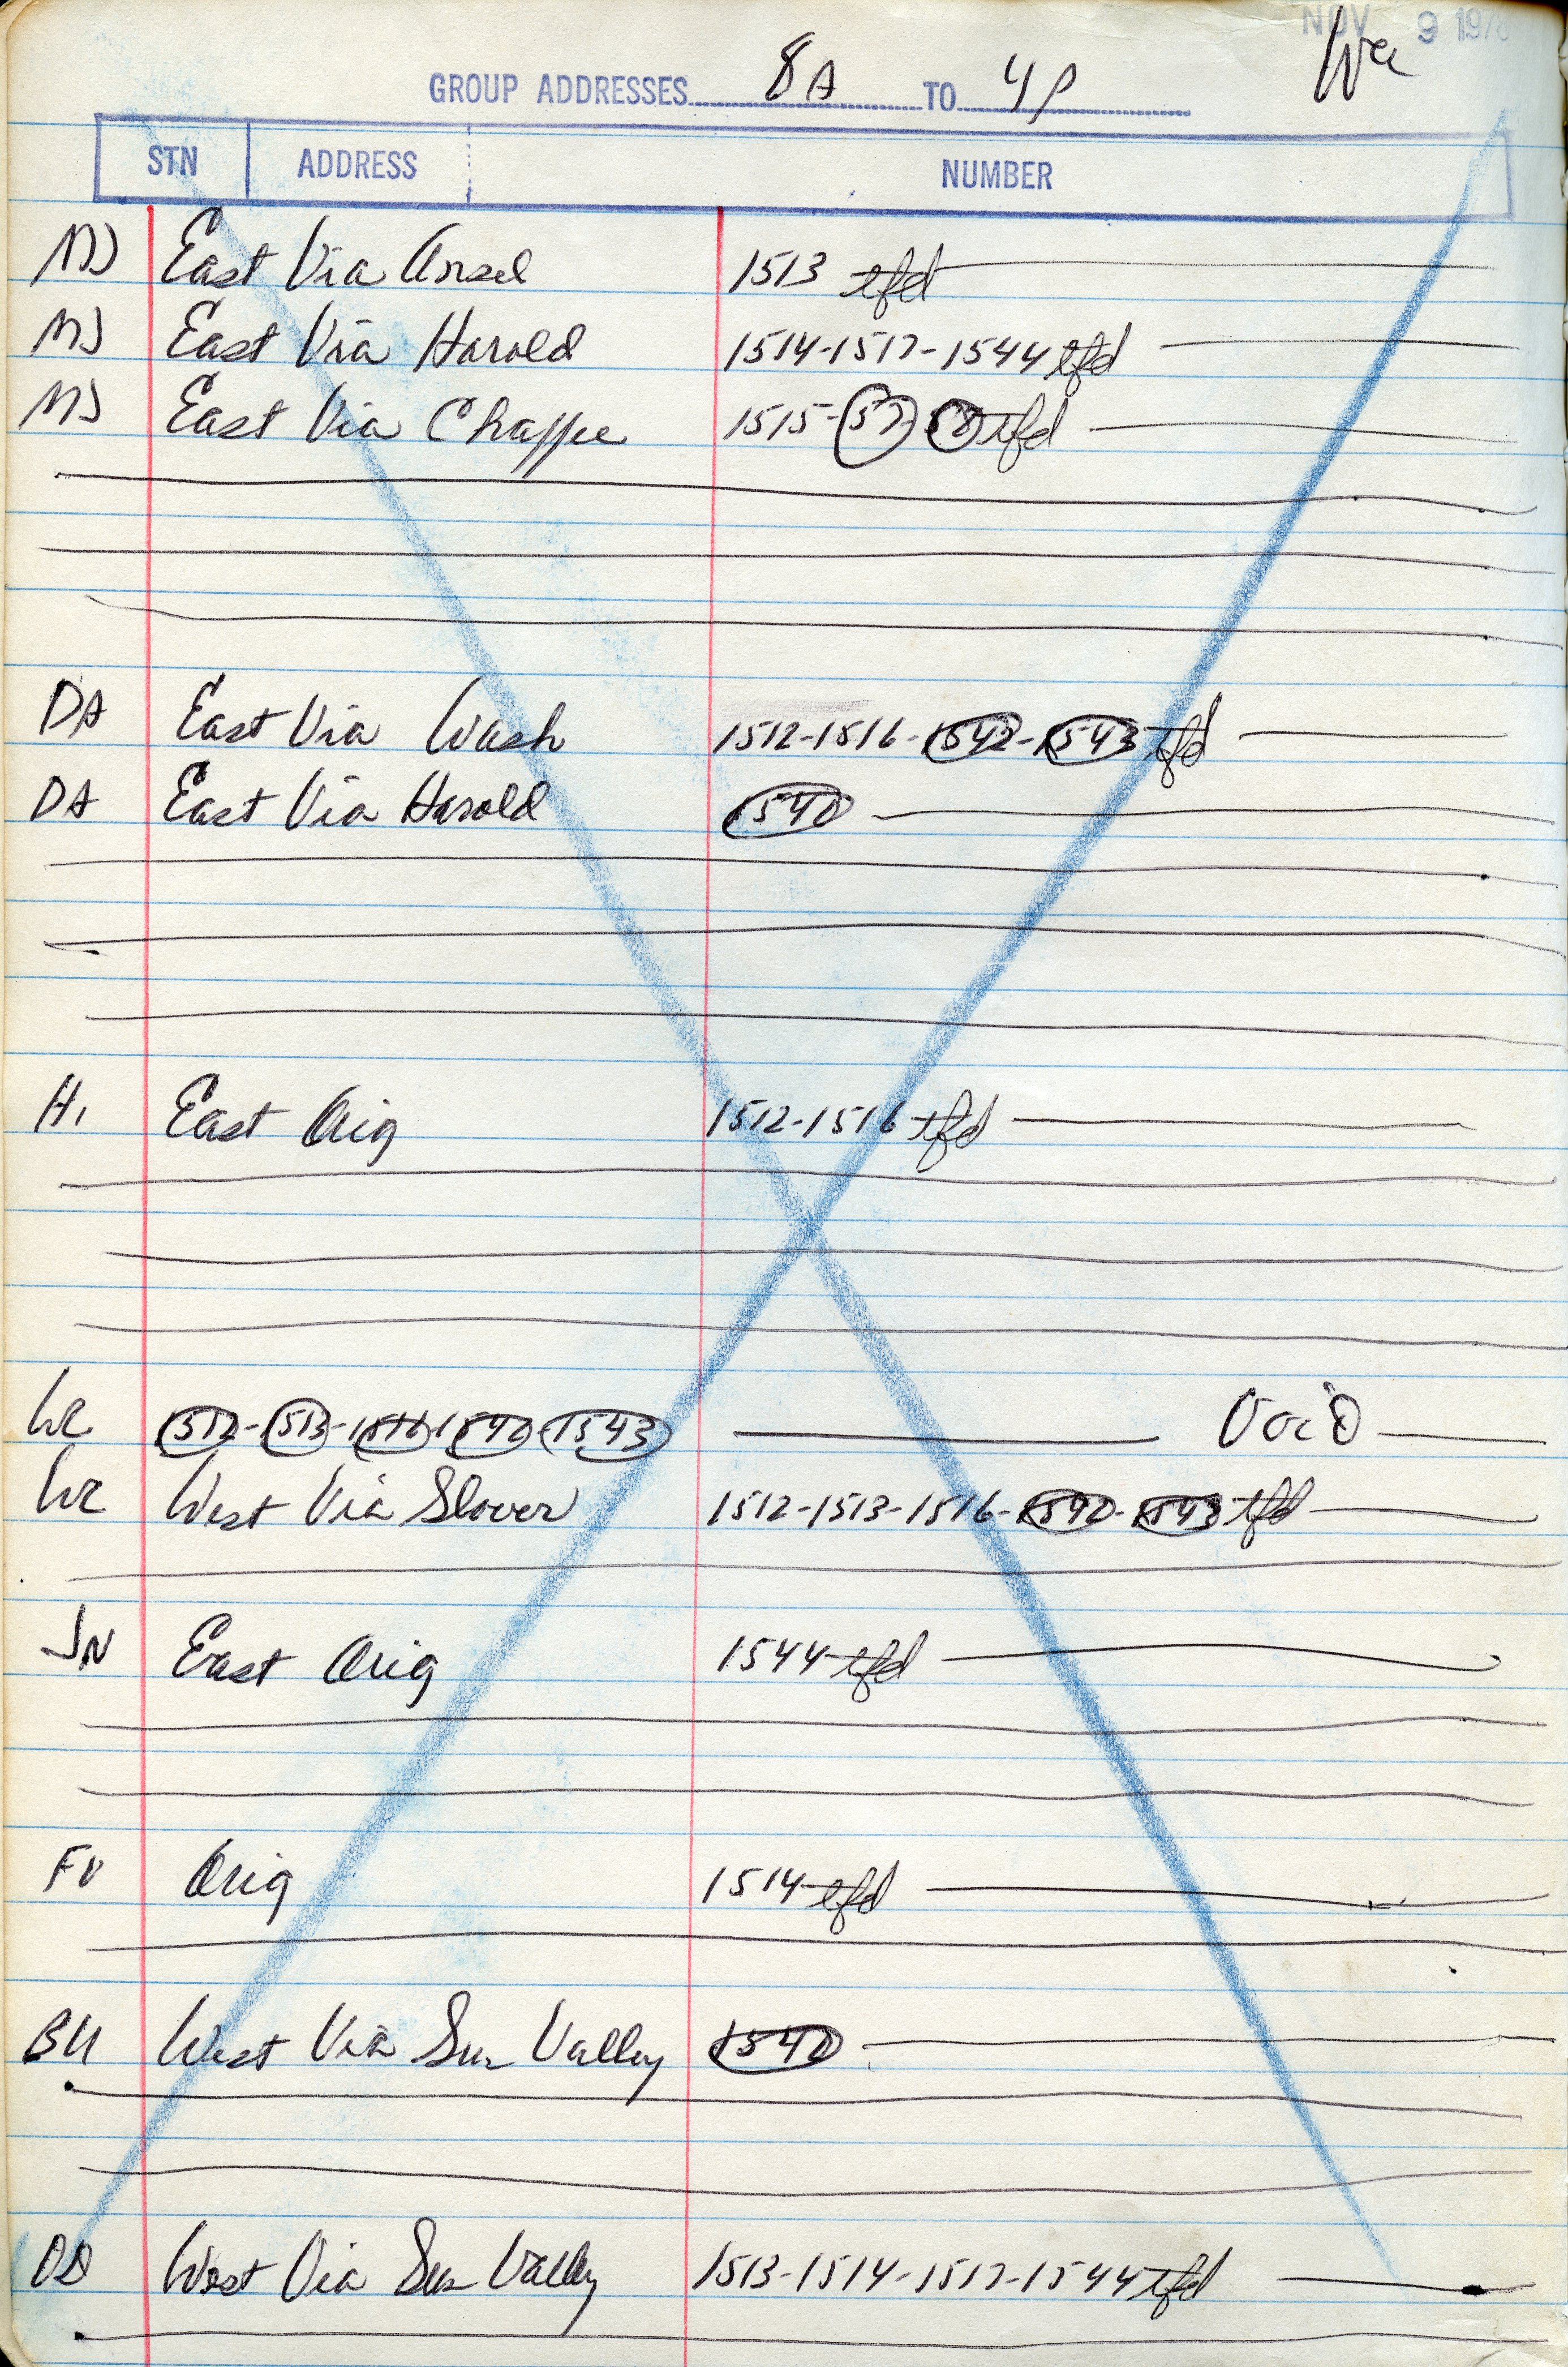 NOV 9 197
GROUP ADDRESSES 8A TO 4P
STN ADDRESS NUMBER
MJ East Via Ansel 1513 tfd
MJ East Via Harold 1514-1517-1544 tfd
MJ East Via Chaffee 1515- tfd
DA East Via Wash 1512-1516-1542-1543 tfd
DA East Via Harold 1540
HI East Orig 1512-1516 tfd
1512-1513-1516-1540-1543 Void
West Via Slover 1512-1513-1516-1540-1543 tfd
JN East Orig 1544 tfd
FU Orig 1514 tfd
BU West Via Sun Valley 1540
West Via Sun Valley 1513-1514-1517-1544 tfd